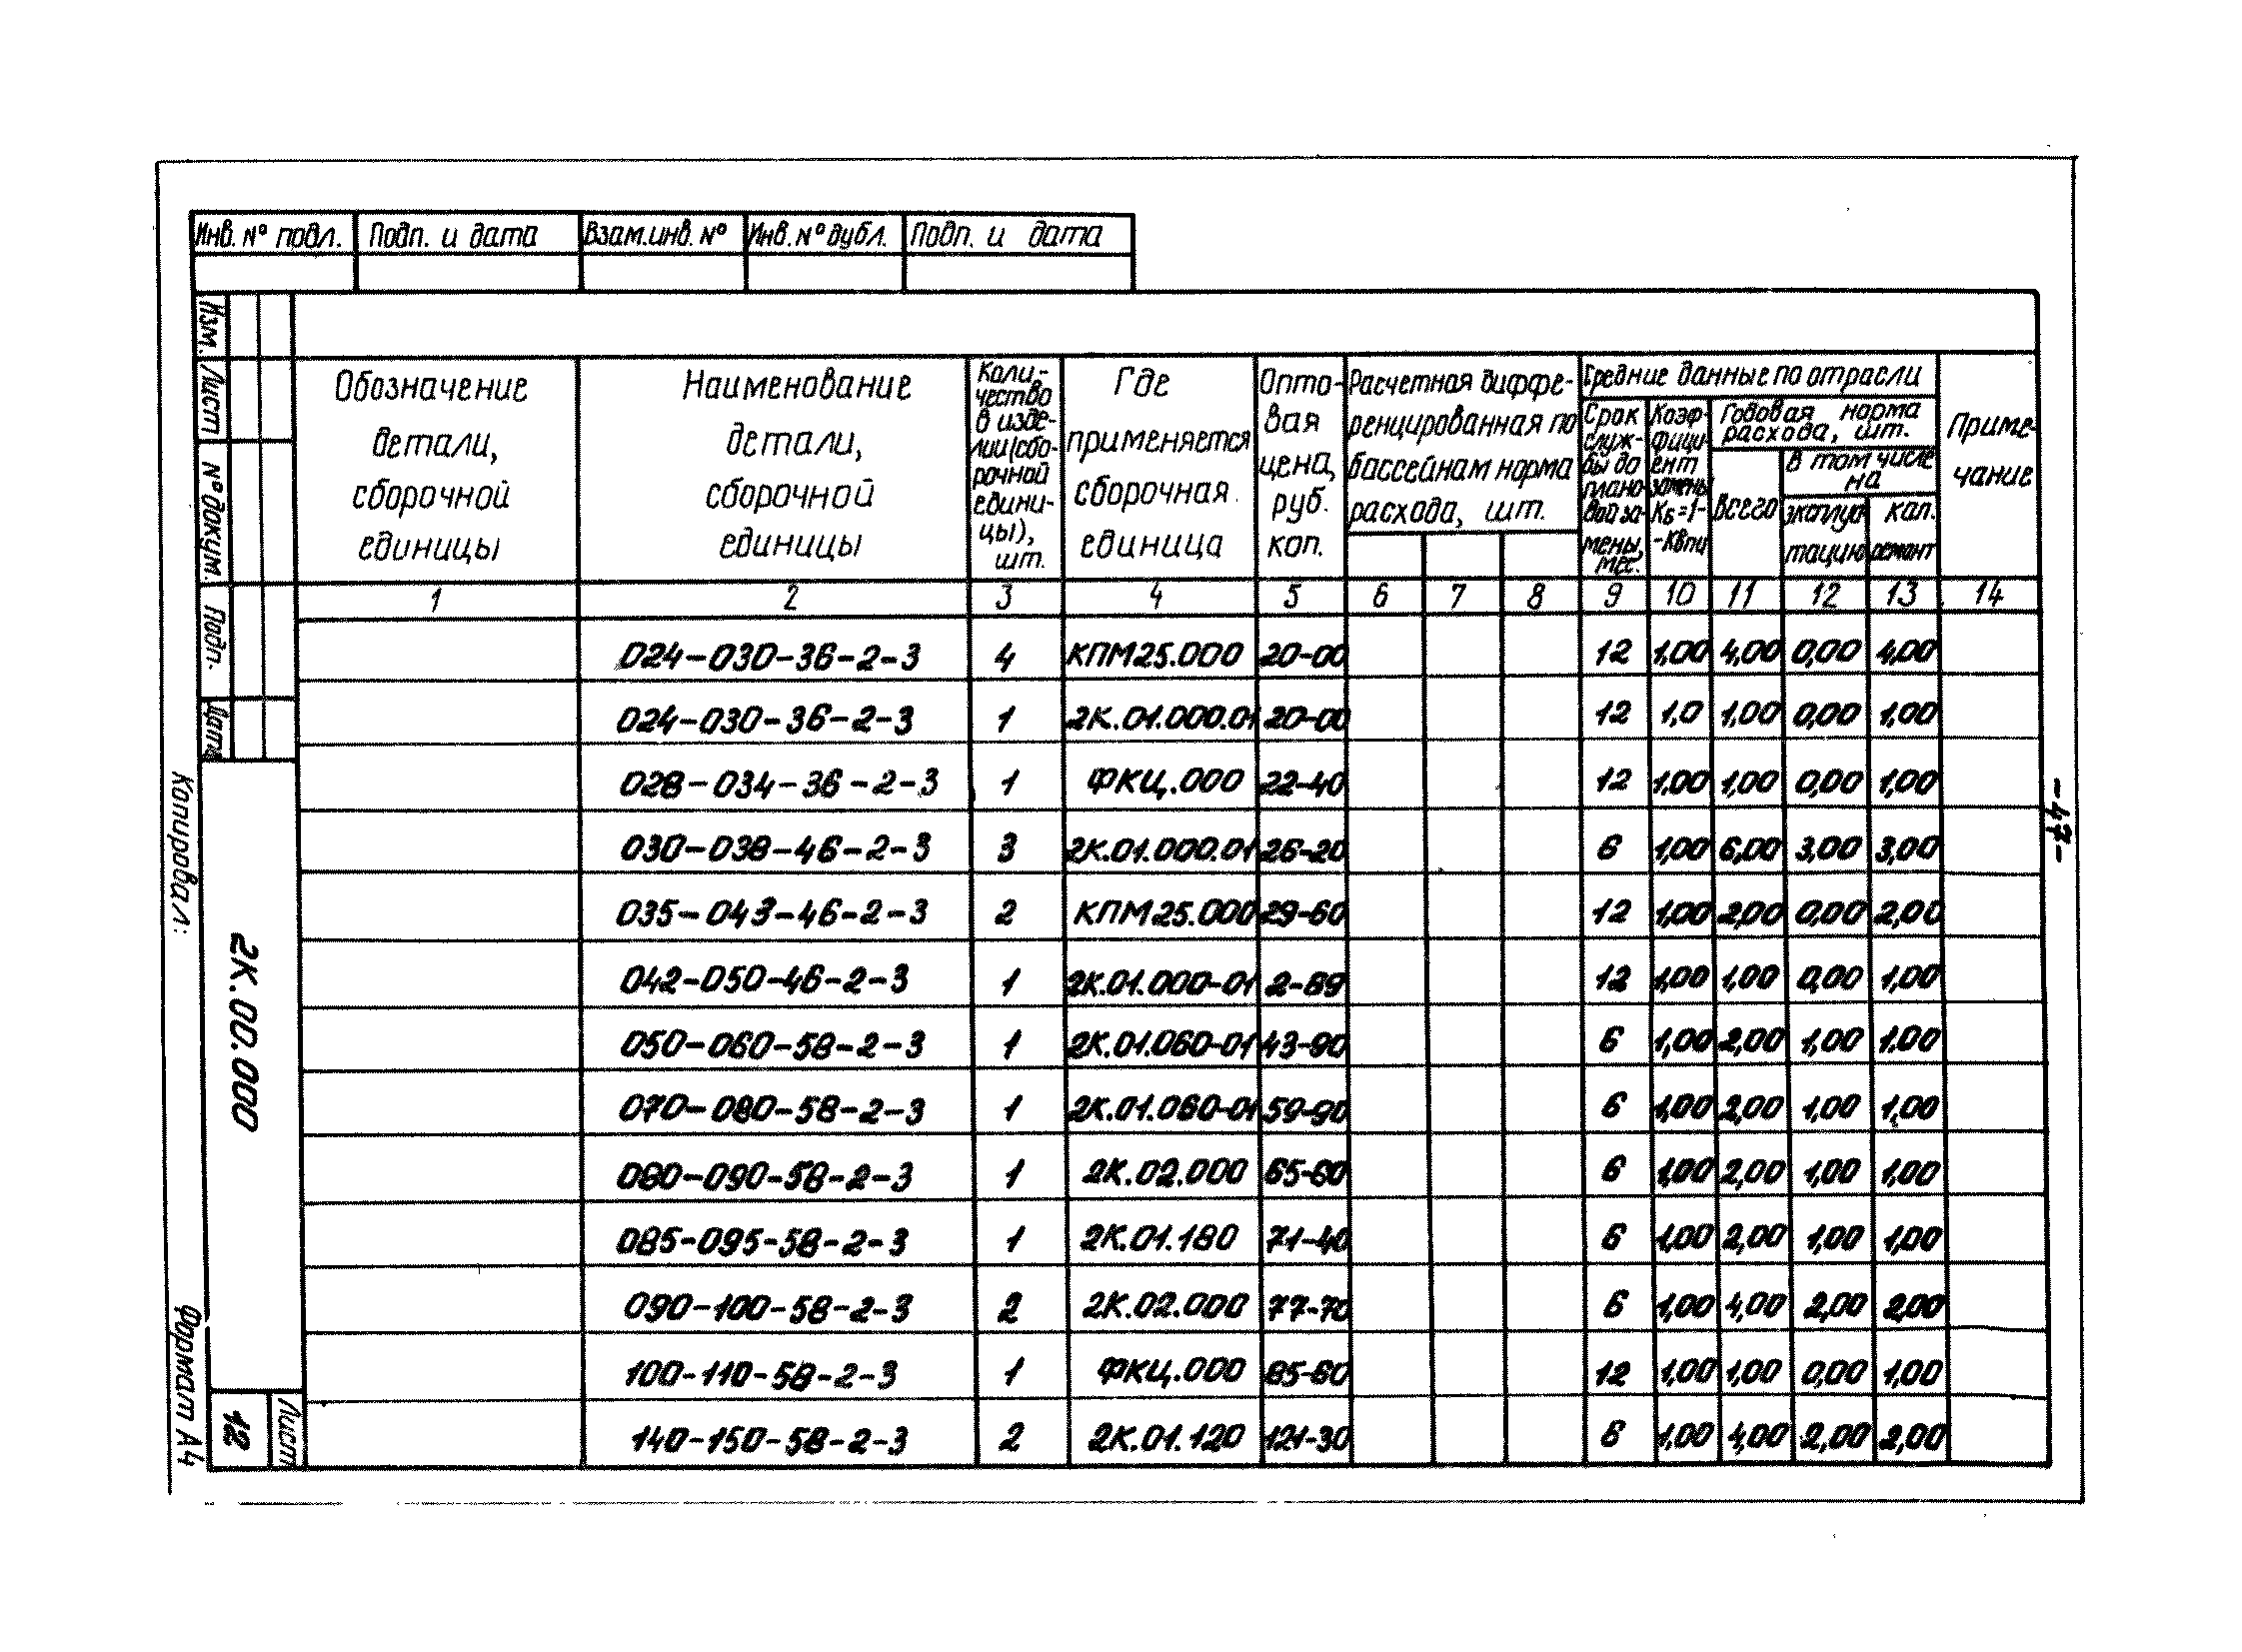 Инв. № подл. Подп. и дата Взам.инв. № Инв. № дубл. Подп. и дата
Изм. Лист № докум. Подп. Дата
Обозначение детали, сборочной единицы
Наименование детали, сборочной единицы
Коли-чество в изде-лии(сбо-рочной едини-цы), шт.
Где применяется сборочная единица
Опто-вая цена, руб. коп.
Расчетная диффе-ренцированная по бассейнам норма расхода, шт.
Средние данные по отрасли
Срок служ-бы до плано-вой за-мены, мес.
Коэф-фици-ент замены Кб=1--Квпи
Годовая норма расхода, шт.
всего
в том числе на
эксплуа-тацию
кап. ремонт
Приме-чание
1 2 3 4 5 6 7 8 9 10 11 12 13 14
024-030-36-2-3 4 КПМ25.000 20-00 12 1,00 4,00 0,00 4,00
024-030-36-2-3 1 2К.01.000.01 20-00 12 1,0 1,00 0,00 1,00
028-034-36-2-3 1 ФКЦ.000 22-40 12 1,00 1,00 0,00 1,00
030-038-46-2-3 3 2К.01.000.01 26-20 6 1,00 6,00 3,00 3,00
035-043-46-2-3 2 КПМ25.000 29-60 12 1,00 2,00 0,00 2,00
042-050-46-2-3 1 2К.01.000-01 12 1,00 1,00 0,00 1,00
050-060-58-2-3 1 2К.01.060-01 43-90 6 1,00 2,00 1,00 1,00
070-080-58-2-3 1 2К.01.060-01 59-90 6 1,00 2,00 1,00 1,00
080-090-58-2-3 1 2К.02.000 6 1,00 2,00 1,00 1,00
085-095-58-2-3 1 2К.01.180 71-40 6 1,00 2,00 1,00 1,00
090-100-58-2-3 2 2К.02.000 77-70 6 1,00 4,00 2,00 2,00
100-110-58-2-3 1 ФКЦ.000 12 1,00 1,00 0,00 1,00
140-150-58-2-3 2 2К.01.120 121-30 6 1,00 4,00 2,00 2,00
2К.00.000
Лист
12
Копировал:
Формат А4
-47-